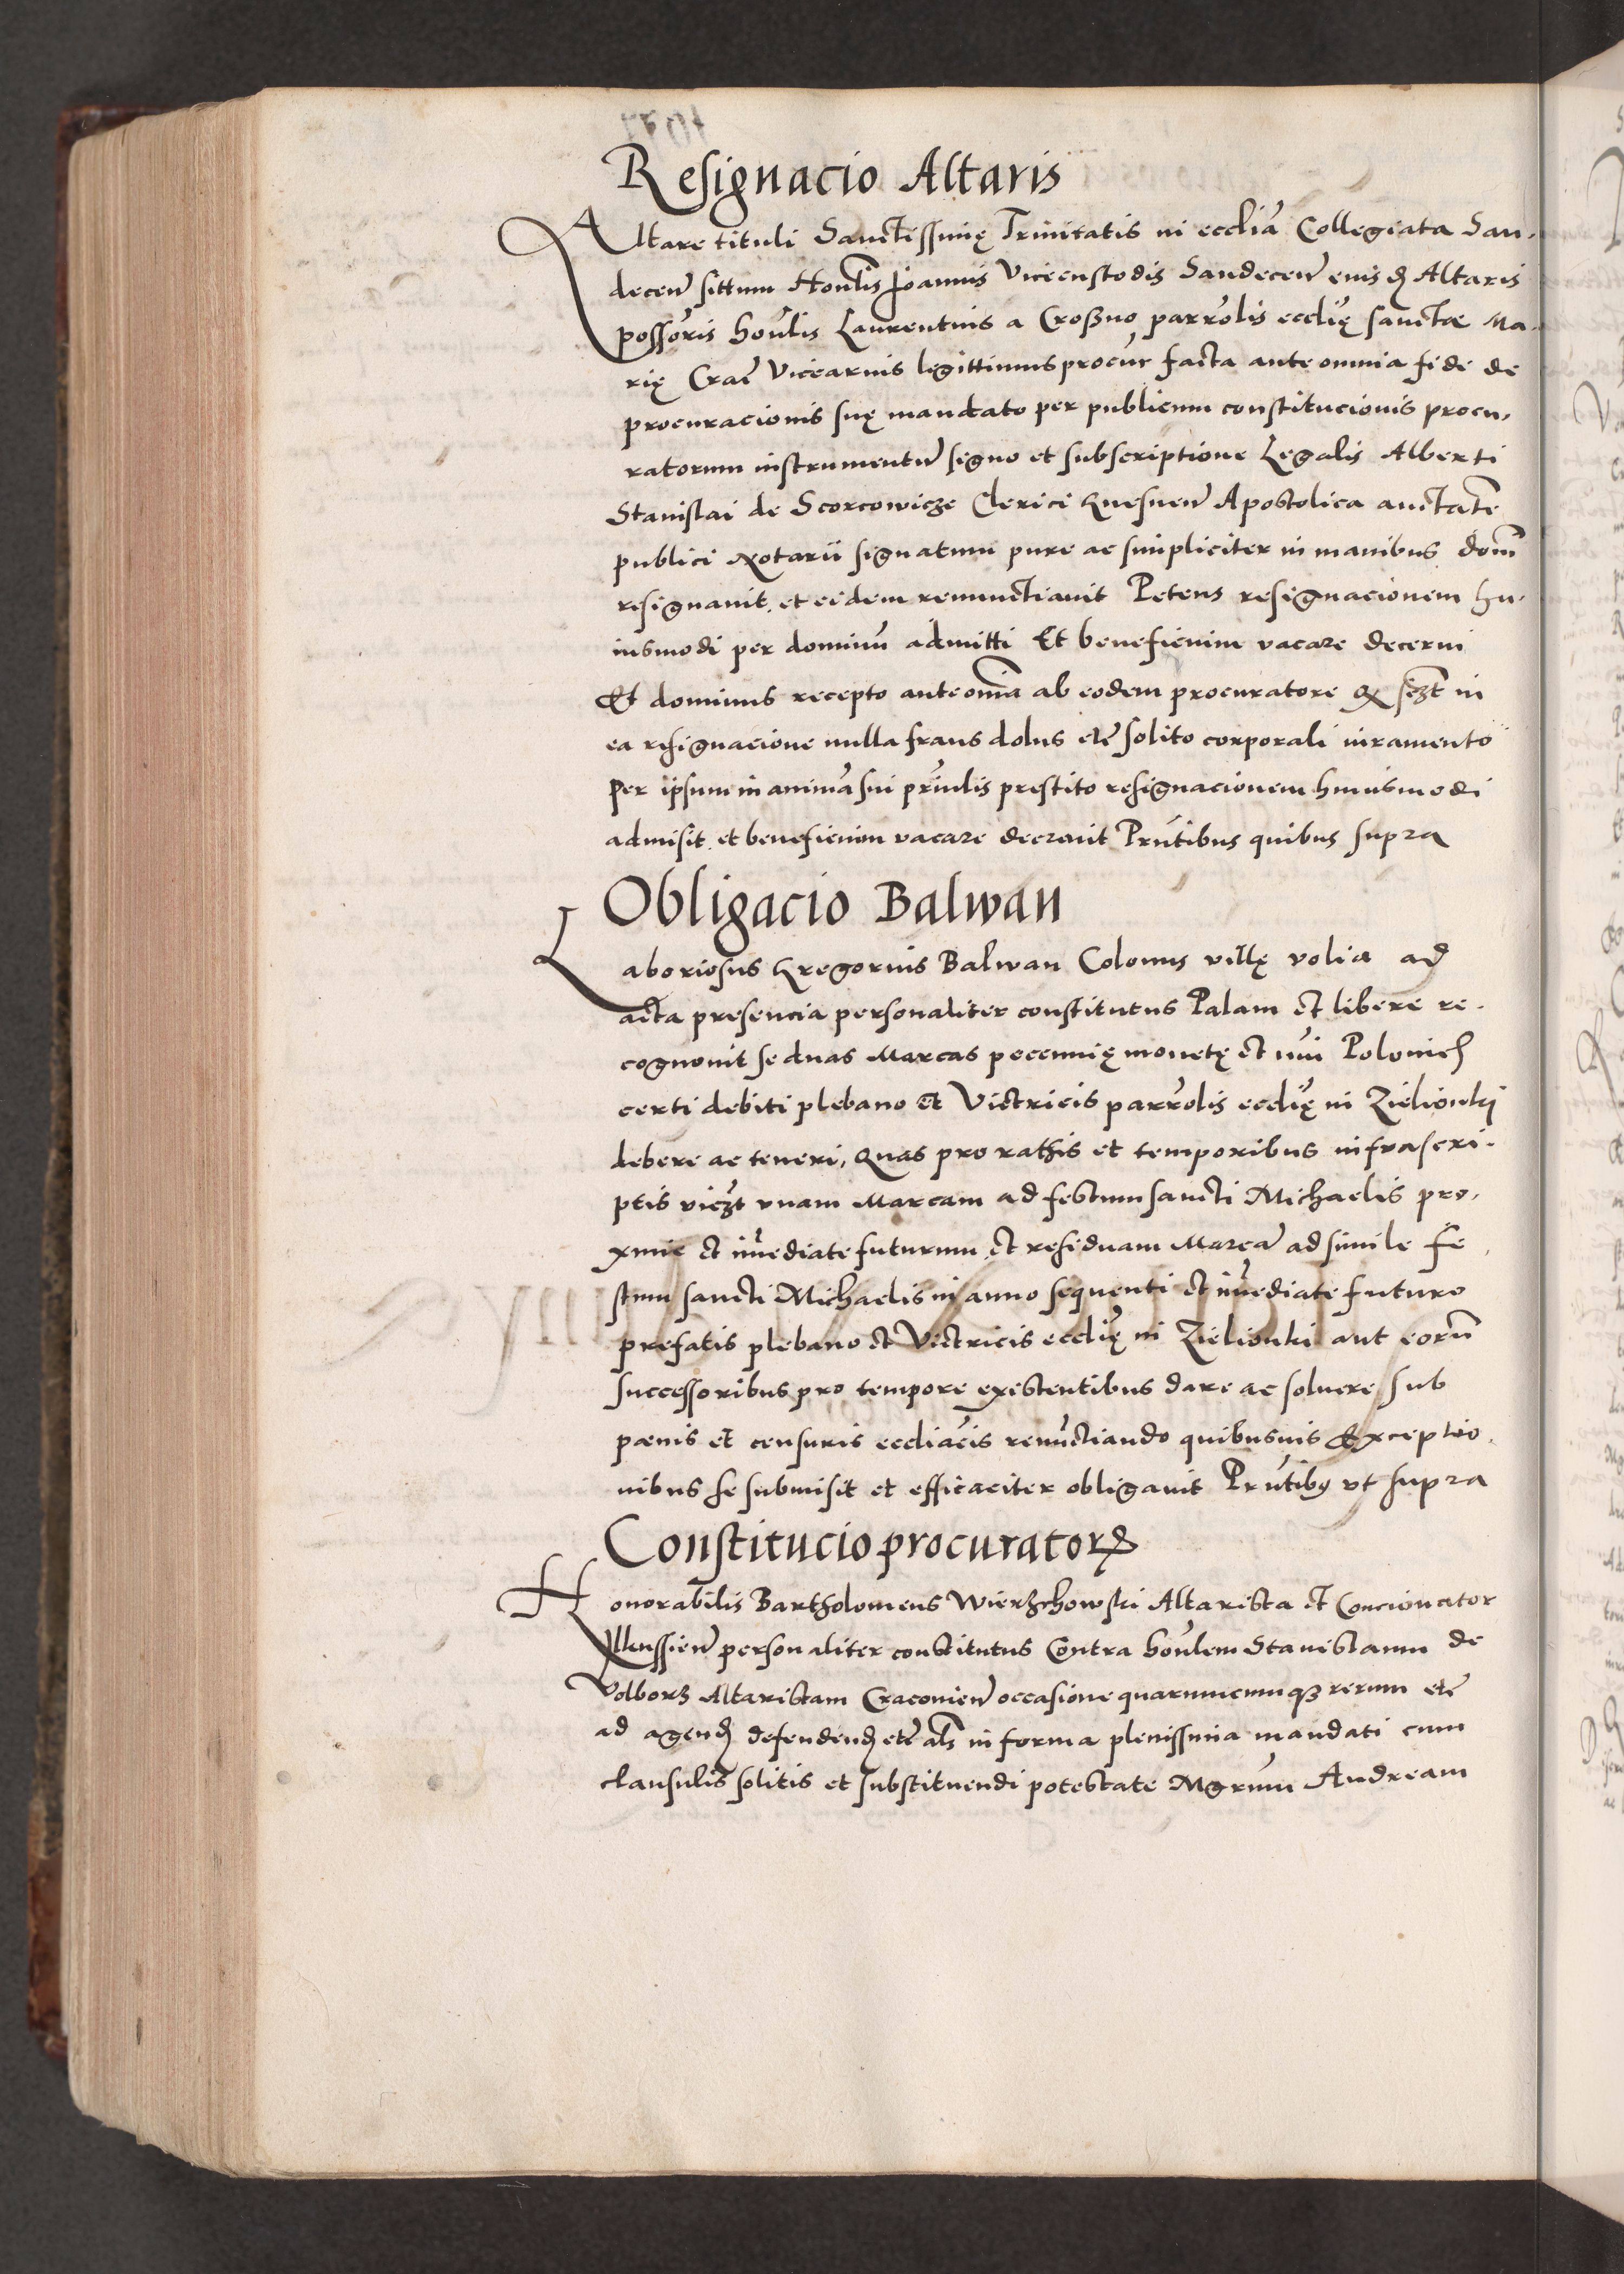 Resignacio Altaris
Altare tituli Sanctissimę Trinitatis in eccliã Collegiata San-
decen̄ sittum Honlis Joannis Vicecustodis Sandecen̄ eius d Altaris
possoris honlis Laurentius a Croßno parrolis ecclię sanctæ Ma-
rię Crac̄ Vicearius legittimus procur facta ante omnia fide de
procuracionis suę mandato per publicum constitucionis procu-
ratorum instrumentū signo et subscriptione Legalis Alberti
Stanislai de Scorcowicze Clerici Gnesnen̄ Apostolica auctate
publici Notarii signatum pure ac simpliciter in manibus dom̄
resignauit, et eidem renunctiauit Petens resignacionem hu-
iusmodi per dominū admitti Et beneficium vacare decerni
Et dominus recepto ante om̄ia ab eodem procuratore q in
ea resignacione nulla fraus dolus etc̄ solito corporali iuramento
per ipsum in animā sui prin̄lis prestito resignacionem huiusmodi
admisit et beneficium vacare decreuit Prn̄tibus quibus supra
Obligacio Balwan
Laboriosus Gregorius Balwan Colonus villę volia ad
acta presencia personaliter constitutus Palam et libere re-
cognouit se duas Marcas peccunię monetę et nūi Polonich
certi debiti plebano et Victricis parrolis ecclię in Zielionki
debere ac teneri, Quas pro rathis et temporibus infrascri-
ptis viczt vnam Marcam ad festum sancti Michaelis pro-
xime et im̄ediate futurum et residuam Marcā ad simile fe-
stum sancti Michaelis in anno sequenti et im̄ediate futuro
prefatis plebano et Victricis ecclię in Zielionki aut eorū
successoribus pro tempore existentibus dare ac soluere sub
pænis et censuris eccliacis renūctiando quibusuis Exceptio-
nibus se submisit et efficaciter obligauit Prn̄tibus vt supra
Constitucio procuratorꝝ
Honorabilis Bartholomeus Wierzchowski Altarista et Concionator
Ilkussien̄ personaliter constitutus Contra honlem Stanislaum de
Volborz Altaristam Cracouien̄ occasione quarumcumqꝫ rerum etc̄
ad agend defendend etc̄ als in forma plenissima mandati cum
clausulis solitis et substituendi potestate Mgrūm Andream